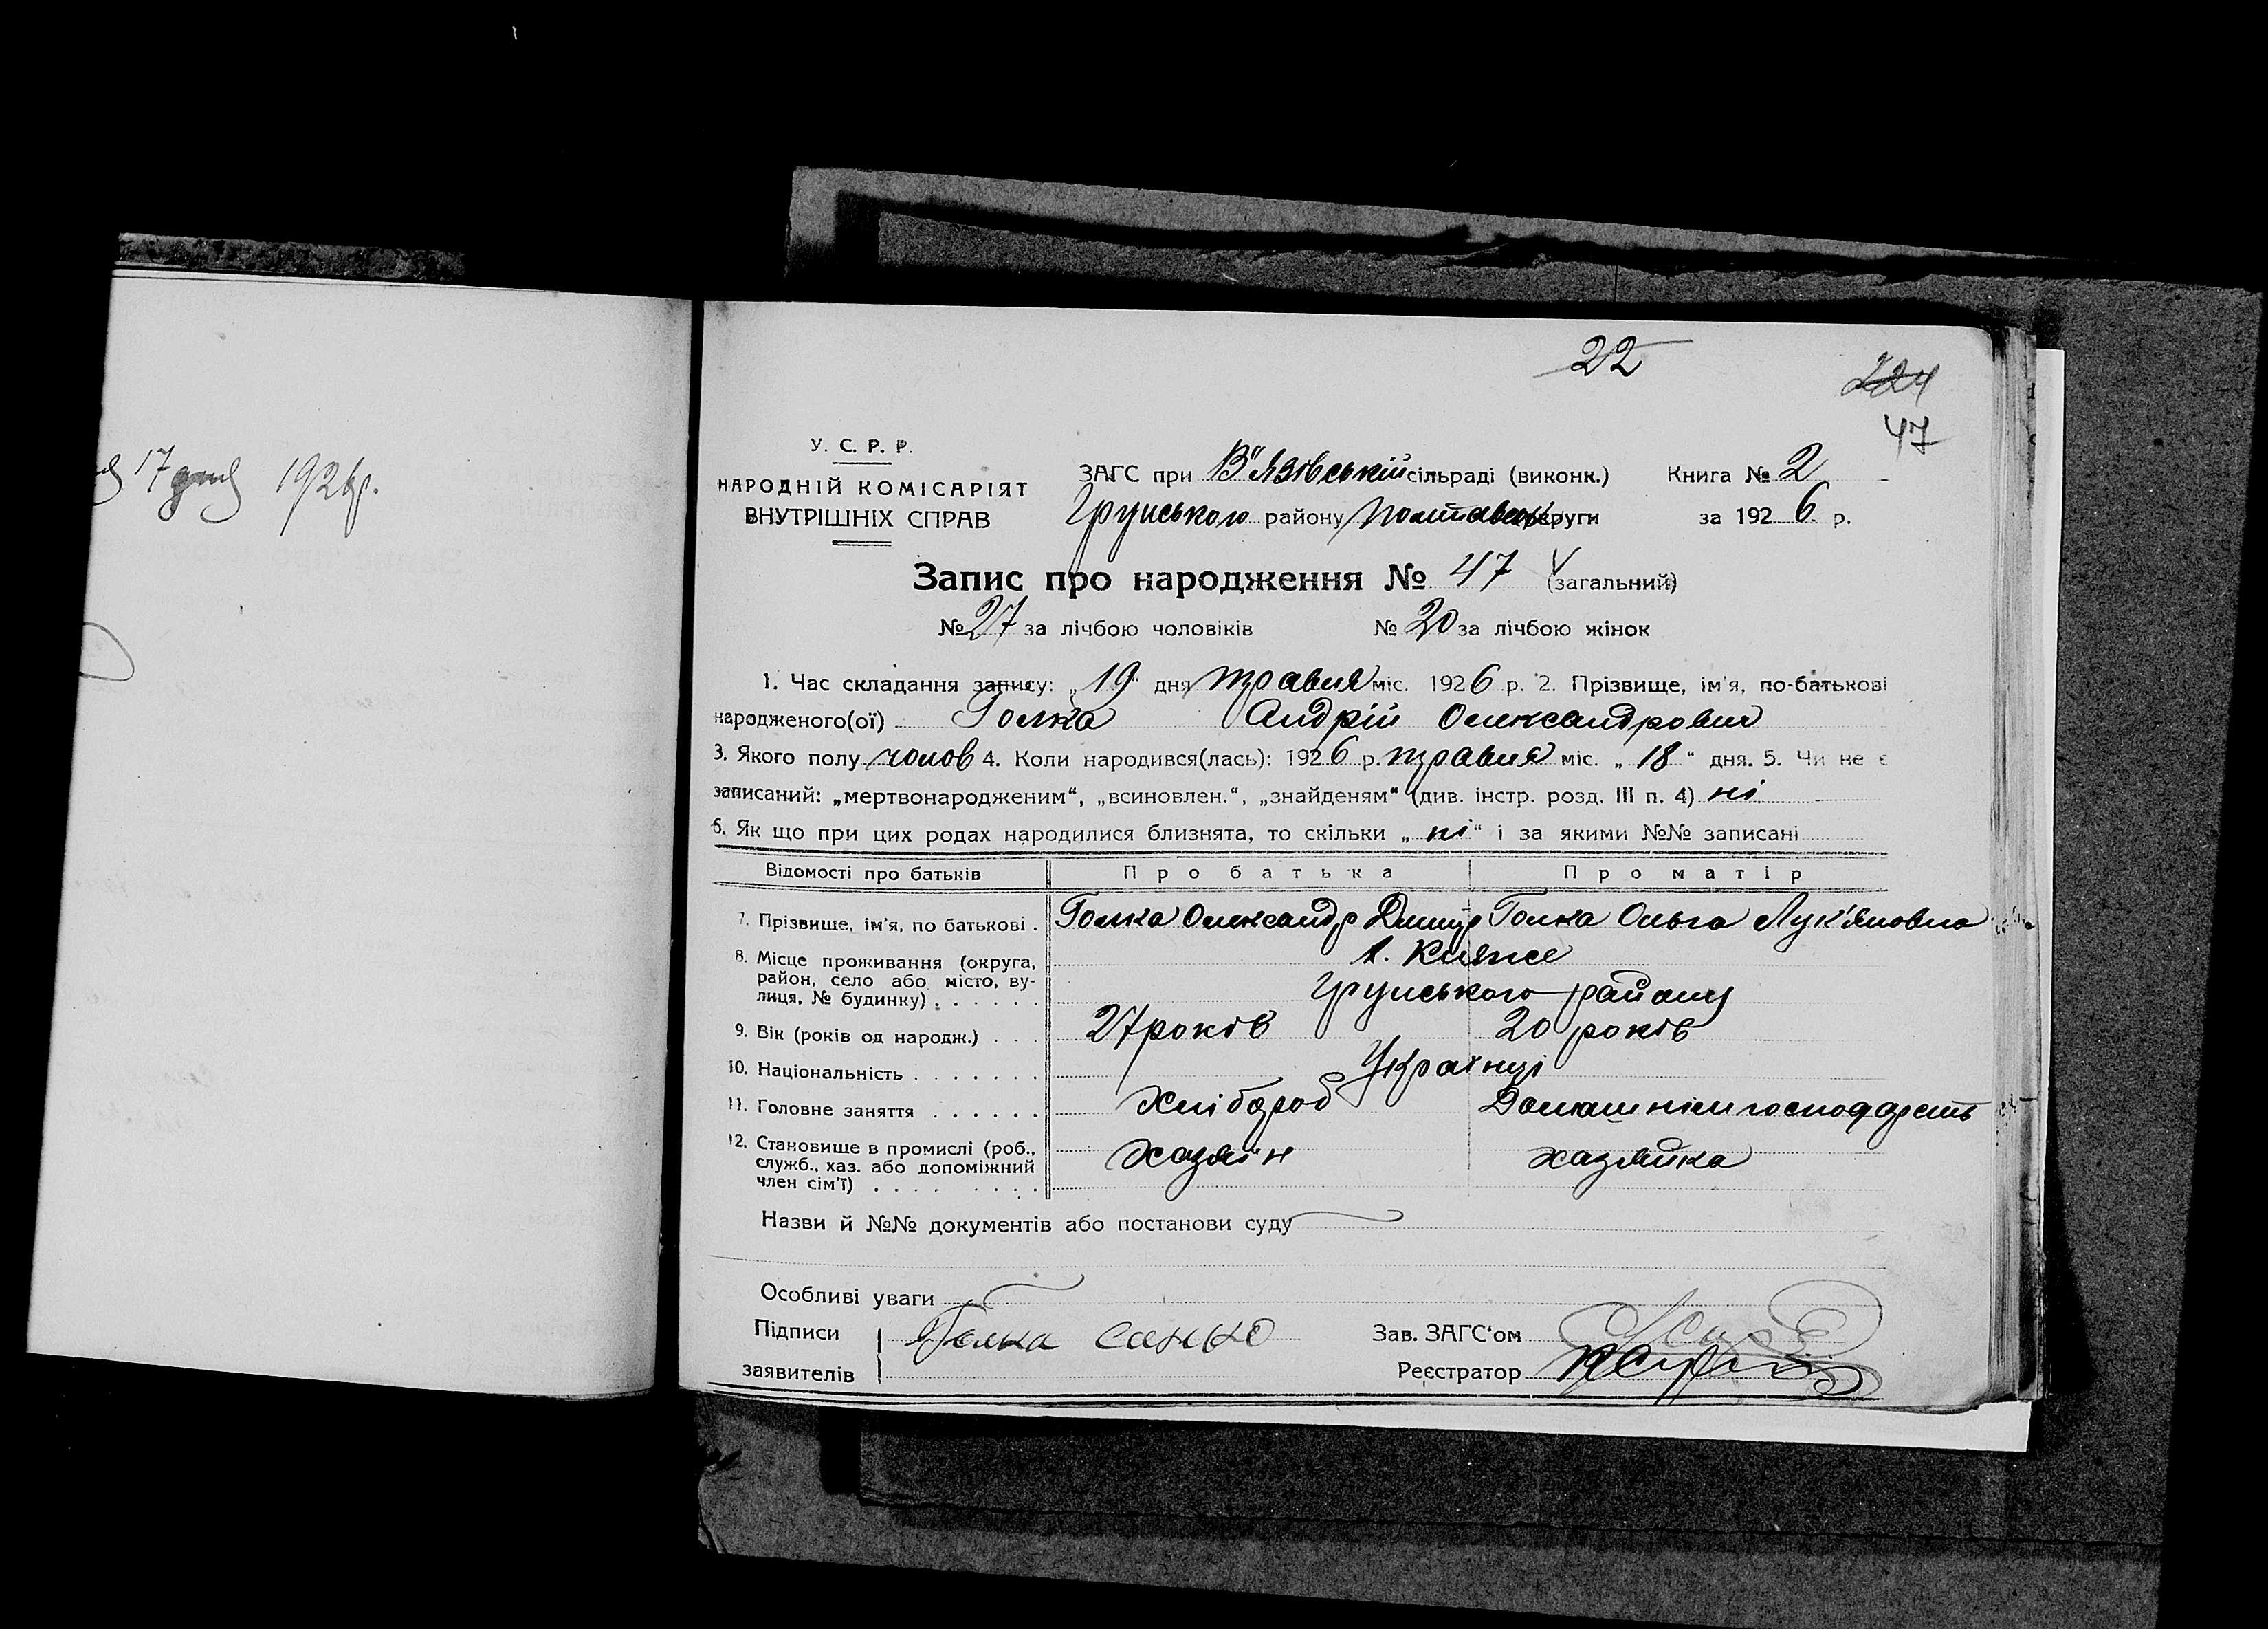 22
224
47
я 17 дня 1926 р.
У. С. Р. Р.
НАРОДНІЙ КОМІСАРІЯТ
ВНУТРІШНІХ СПРАВ
ЗАГС при В"язівській сільраді (виконк.) Книга № 2
Грунського району Полтавськ округи за 1926 р.
Запис про народження № 47 (загальний)
№ 27 за лічбою чоловіків № 20 за лічбою жінок
1. Час складання запису: „19" дня травня міс. 1926 р. 2. Прізвище, ім'я, по-батькові
народженого(ої) Голка Андрій Олександрович
3. Якого полу чолов 4. Коли народився(лась): 1926 р. травня міс. „18" дня. 5. Чи не є
записаний: „мертвонародженим", „всиновлен.", „знайденям" (див. інстр. розд. III п. 4) ні
6. Як що при цих родах народилися близнята, то скільки „ні" і за якими №№ записані
Відомості про батьків Про батька Про матір
7. Прізвище, ім'я, по батькові . Голка Олександр Дмитр Голка Ольга Лук'яновна
8. Місце проживання (округа, район, село або місто, ву-
лиця, № будинку) . . . . . . Княже
Грунського району
9. Вік (років од народж.) . . . 27 років 20 років
10. Національність . . . . . . . Українці
11. Головне заняття . . . . . . Хлібороб Домашнім господарств
12. Становище в промислі (роб., служб., хаз. або допоміжний
член сім'ї) . . . . . . . . Хазяїн хазяйка
Назви й №№ документів або постанови суду
Особливі уваги
Підписи Голка Зав. ЗАГС'ом
заявителів Реєстратор